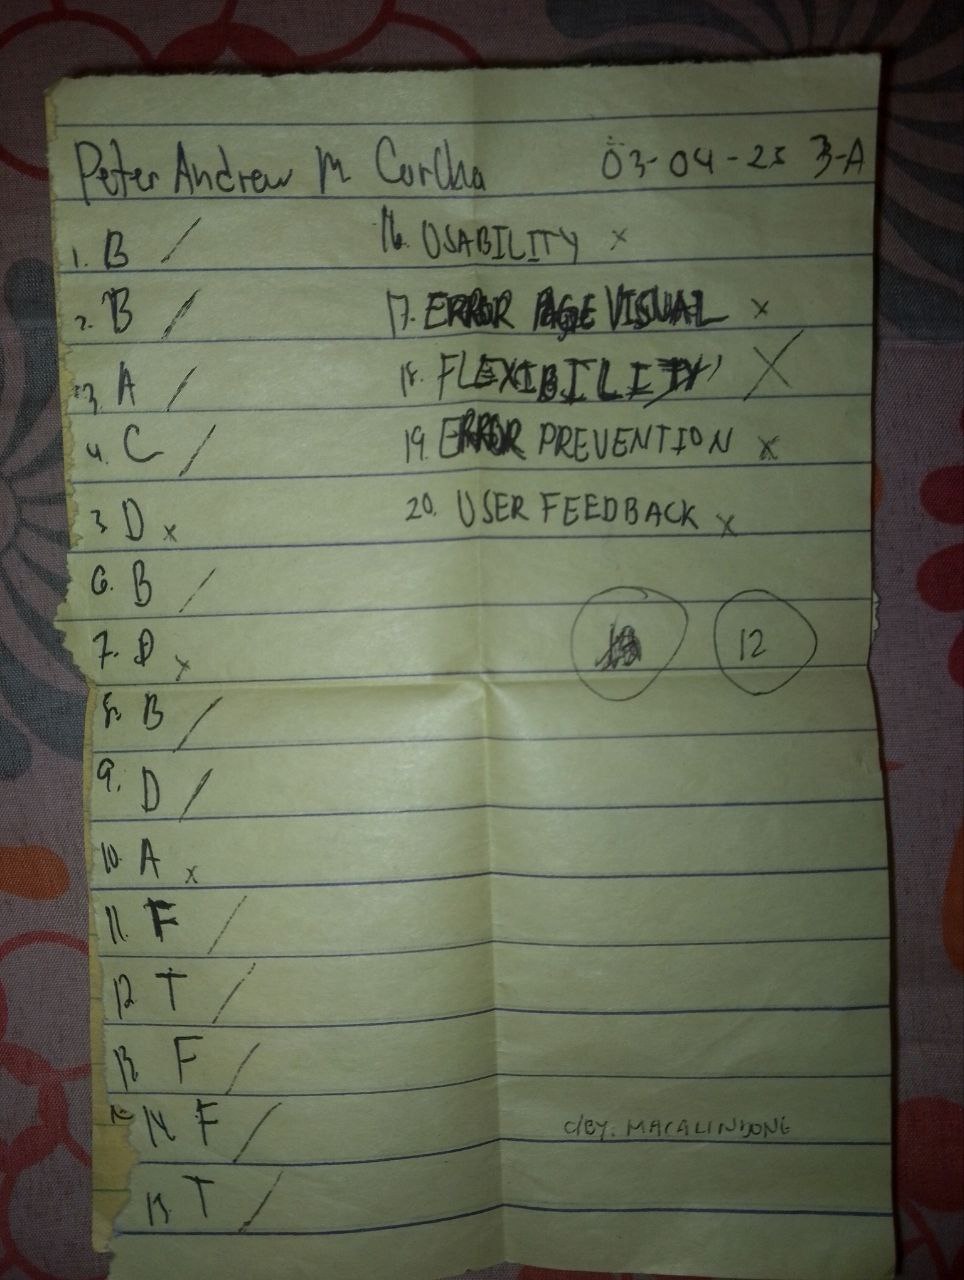 Peter Andrew M 03-04-25 3-A
1. B /
2. B /
3. A /
4. C /
5. D x
6. B /
7. D x
8. B /
9. D /
10. A x
11. F /
12 T /
13 F /
14 F /
15 T /
16. USABILITY x
17. ERROR PAGE VISUAL x
18. FLEXIBILITY x
19. ERROR PREVENTION x
20. USER FEEDBACK x
12
c/BY. MACALINDONG